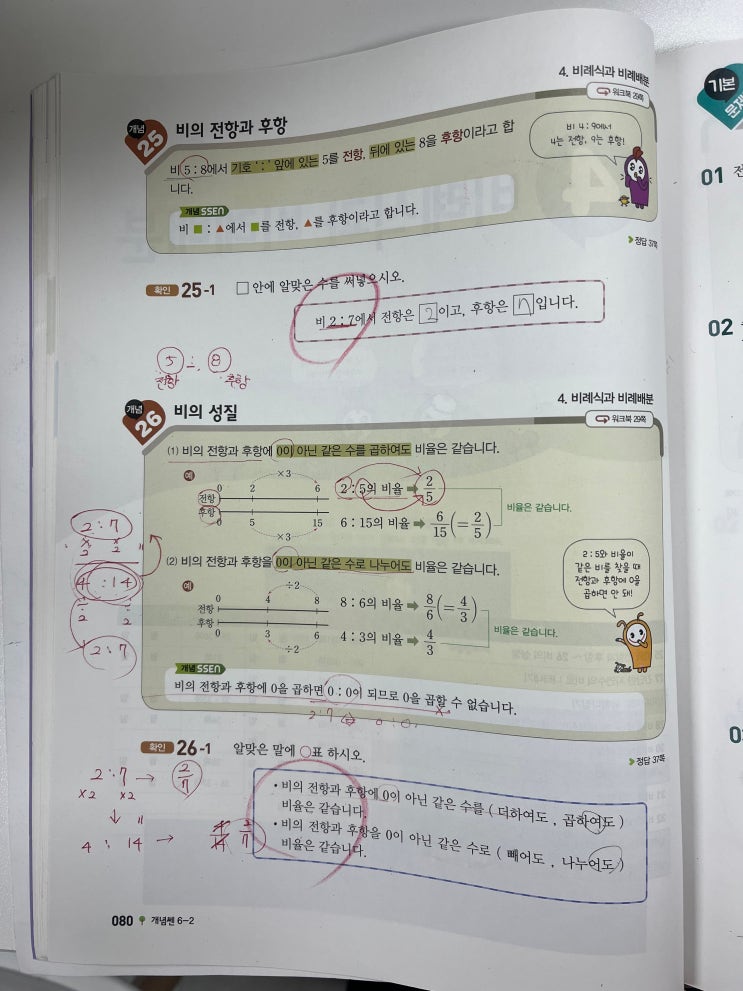 4. 비례식과 비례배분
워크북 29쪽
개념 25 비의 전항과 후항
비 4 : 9에서
4는 전항, 9는 후항!
비 5 : 8에서 기호 ':' 앞에 있는 5를 전항, 뒤에 있는 8을 후항이라고 합
니다.
개념 SSEN
비 ■ : ▲에서 ■를 전항, ▲를 후항이라고 합니다.
정답 37쪽
확인 25-1 □ 안에 알맞은 수를 써넣으시오.
비 2 : 7에서 전항은 2이고, 후항은 7입니다.
5 : 8
전항 후항
4. 비례식과 비례배분
워크북 29쪽
개념 26 비의 성질
(1) 비의 전항과 후항에 0이 아닌 같은 수를 곱하여도 비율은 같습니다.
예
×3
0 2 6
전항
후항
0 5 15
×3
2 : 5의 비율 ➡ 2/5
6 : 15의 비율 ➡ 6/15(=2/5)
비율은 같습니다.
(2) 비의 전항과 후항을 0이 아닌 같은 수로 나누어도 비율은 같습니다.
예
÷2
0 4 8
전항
후항
0 3 6
÷2
8 : 6의 비율 ➡ 8/6(=4/3)
4 : 3의 비율 ➡ 4/3
비율은 같습니다.
2 : 5와 비율이
같은 비를 찾을 때
전항과 후항에 0을
곱하면 안 돼!
2 : 7
× ×
2 2
4 : 14
÷ ÷
2 2
2 : 7
개념 SSEN
비의 전항과 후항에 0을 곱하면 0 : 0이 되므로 0을 곱할 수 없습니다.
2 : 7 0 : 0
정답 37쪽
확인 26-1 알맞은 말에 ○표 하시오.
• 비의 전항과 후항에 0이 아닌 같은 수를 ( 더하여도 , 곱하여도 )
비율은 같습니다.
• 비의 전항과 후항을 0이 아닌 같은 수로 ( 빼어도 , 나누어도 )
비율은 같습니다.
2 : 7 → 2/7
×2 ×2
↓ =
4 : 14 → 4/14 2/7
080 개념쎈 6-2
기본
문제
01
02